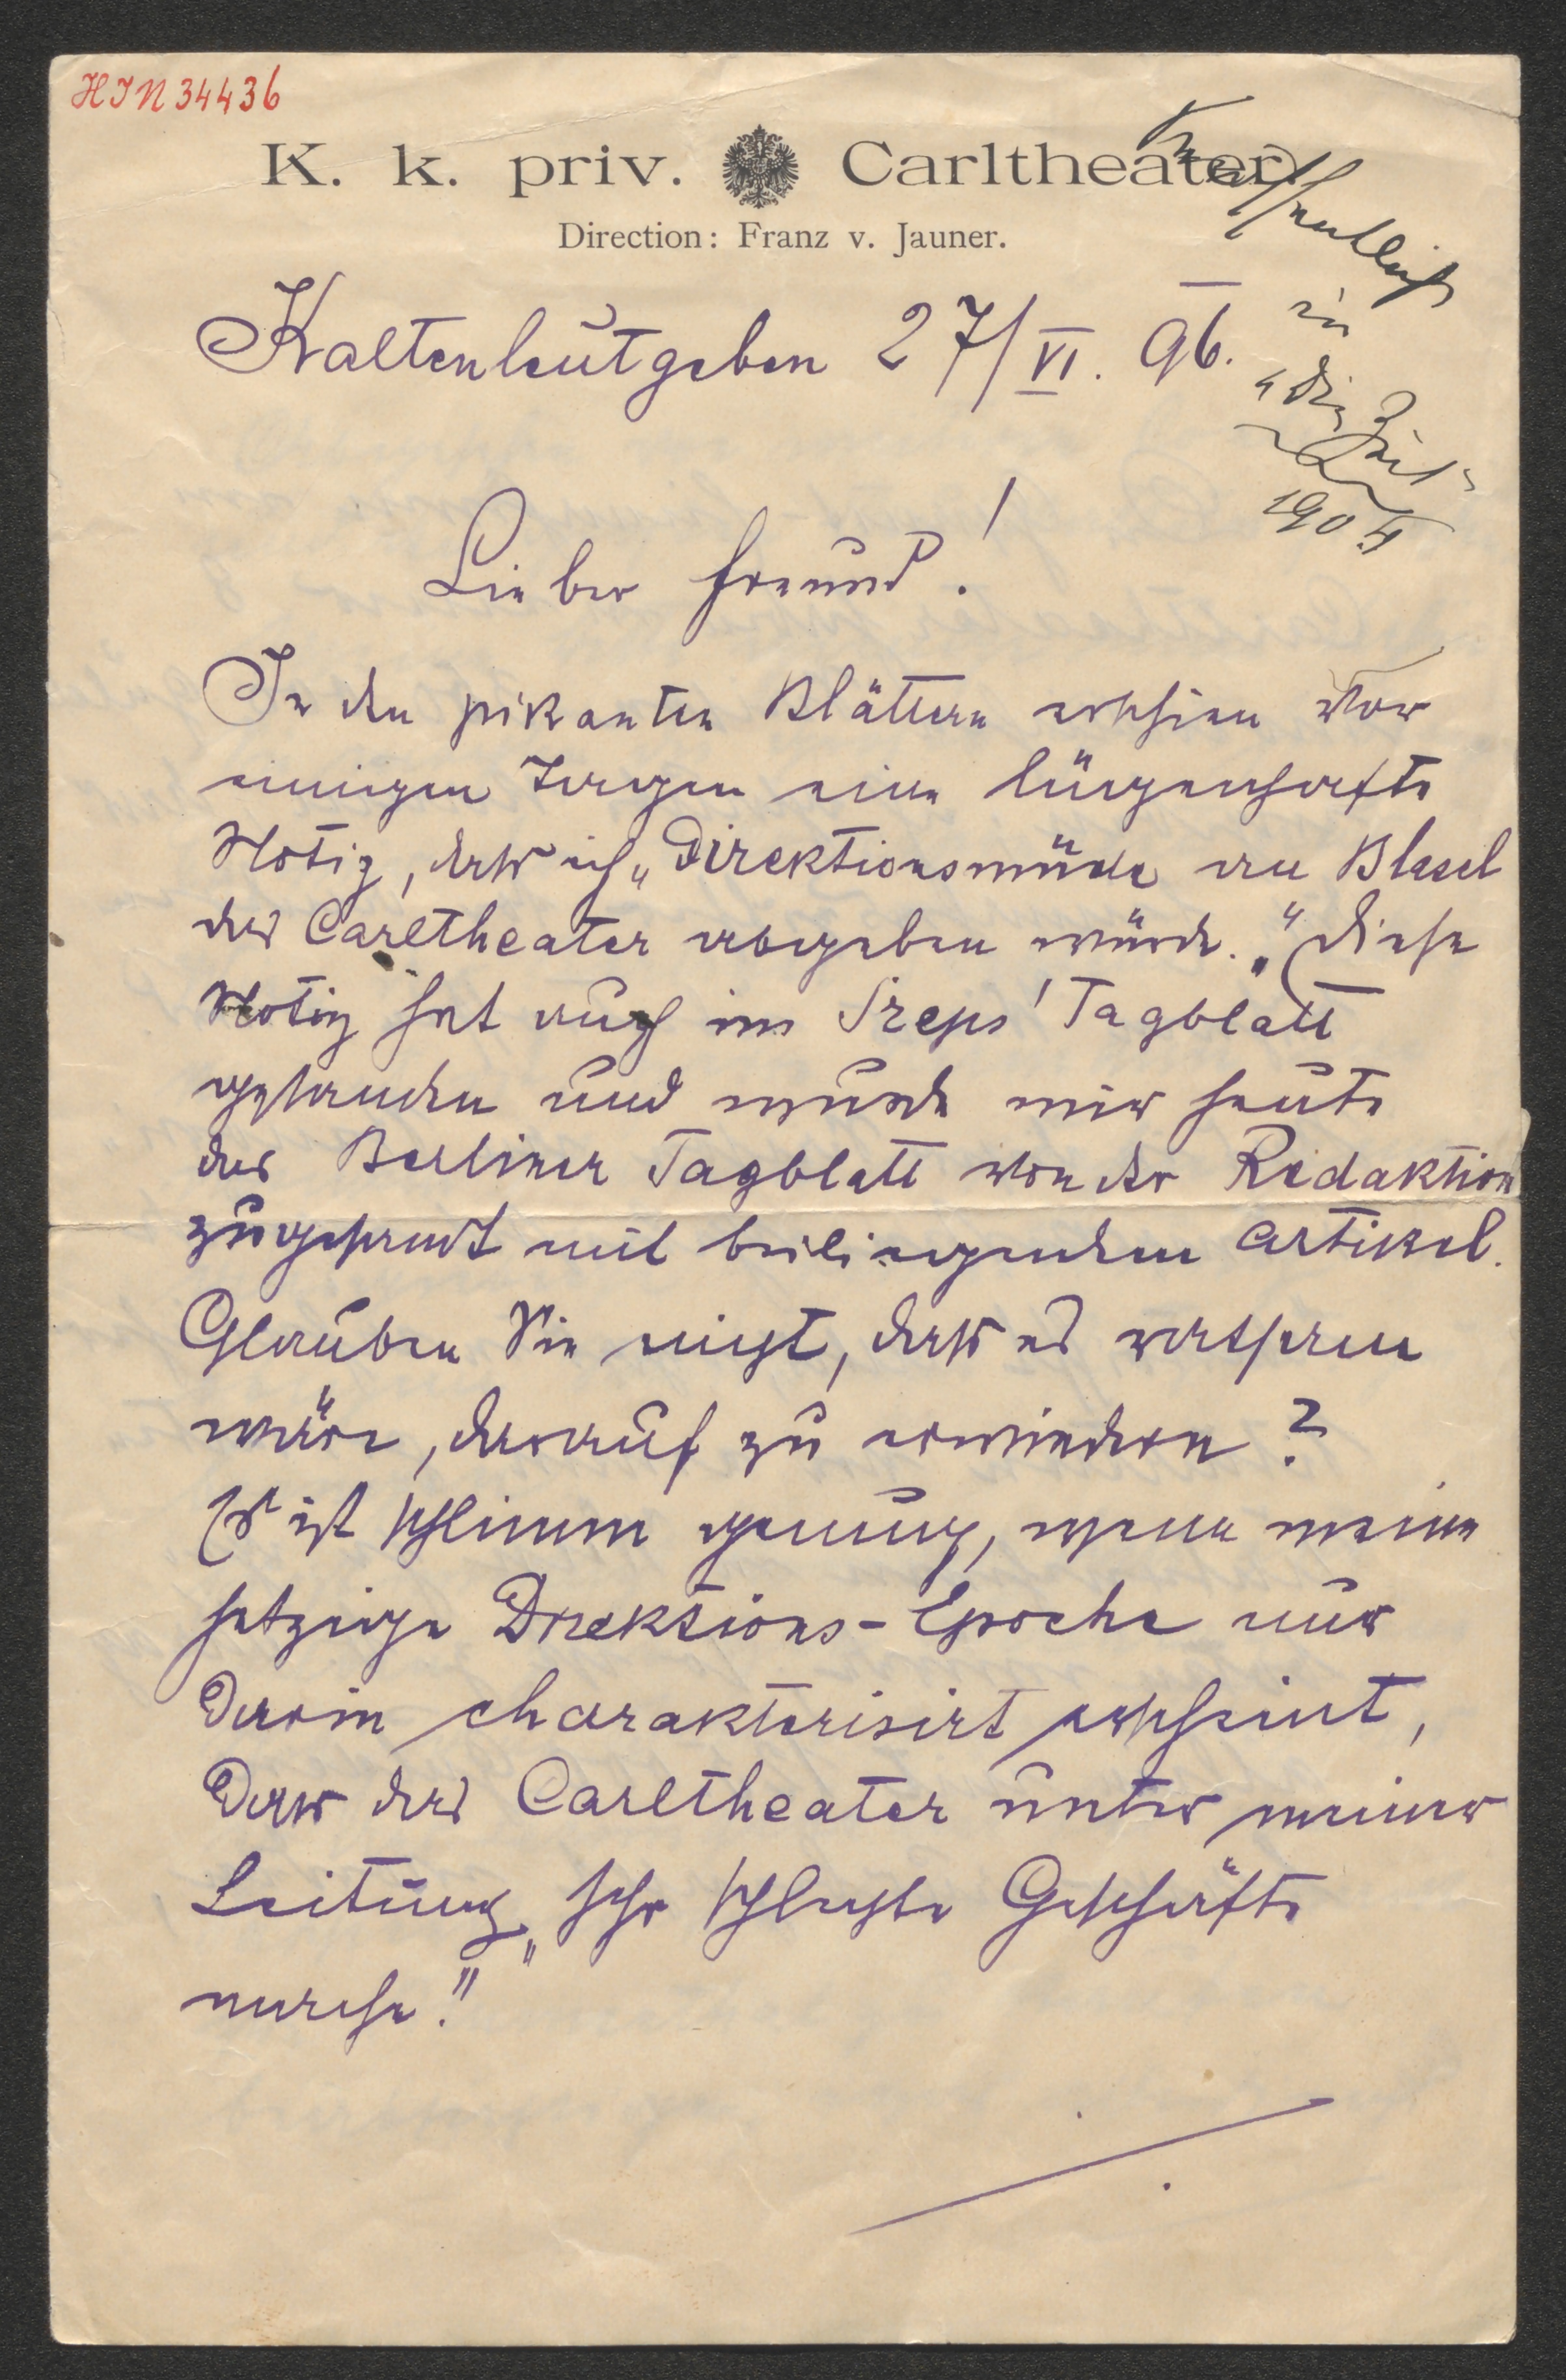 HIN 34436
K. k. priv. Carltheater.
Direction: Franz v. Jauner.
Veröffentlicht
in
"Die Zeit"
1904
Kaltenleutgeben 27/VI. 96.
Lieber Freund!
In den pikanten Blättern erschien vor
einigen Tagen eine lügenhafte
Notiz, dass ich „Direktionsmüde an Blasel
das Carltheater abgeben würde." Diese
Notiz hat auch im Szeps' Tagblatt
gestanden und wurde mir heute
das Berliner Tagblatt von der Redaktion
zugesandt mit beiliegendem Artikel.
Glauben Sie nicht, dass es rathsam
wäre, darauf zu erwiedern?
Es ist schlimm genug, wenn meine
jetzige Direktions-Epoche nur
darin charakterisirt erscheint,
dass das Carltheater unter meiner
Leitung „sehr schlechte Geschäfte
mache!"